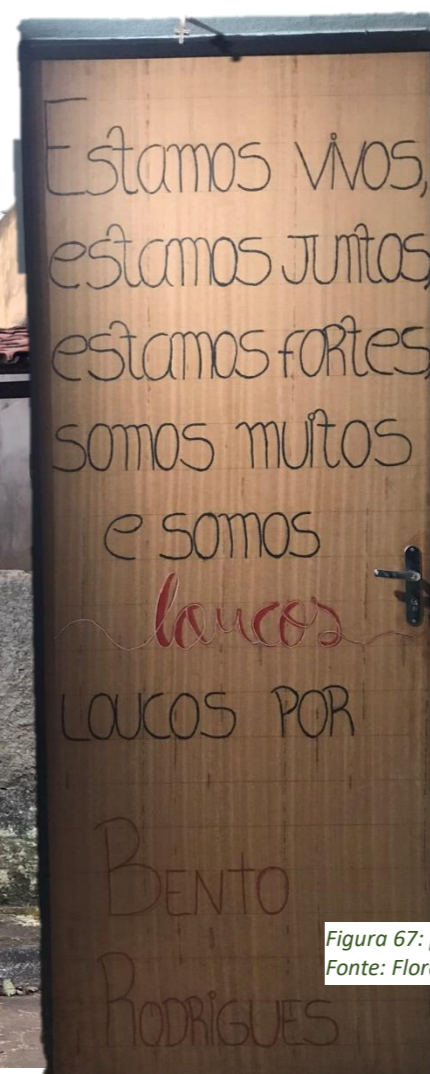 Estamos vivos,
estamos juntos,
estamos fortes,
somos muitos
e somos
loucos
LOUCOS POR
BENTO
RODRIGUES
Figura 67:
Fonte: